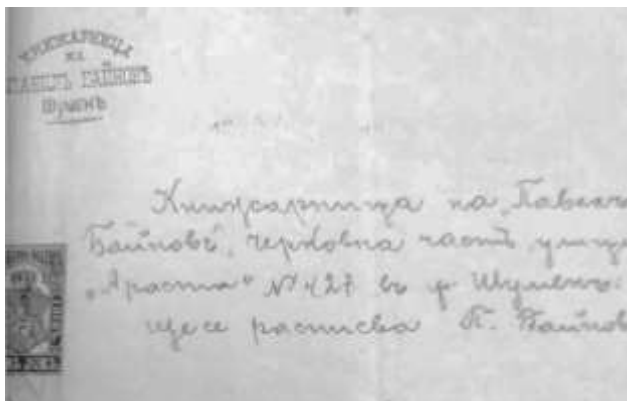 КНИЖАРНИЦА
НА
ПАВЕЛЪ БАЙНОВЪ
Шуменъ
Книжарница на „Павелъ
Байновъ", черковна частъ, улица
„Араста" № 427 въ г. Шуменъ:
ще се расписва П. Байнов